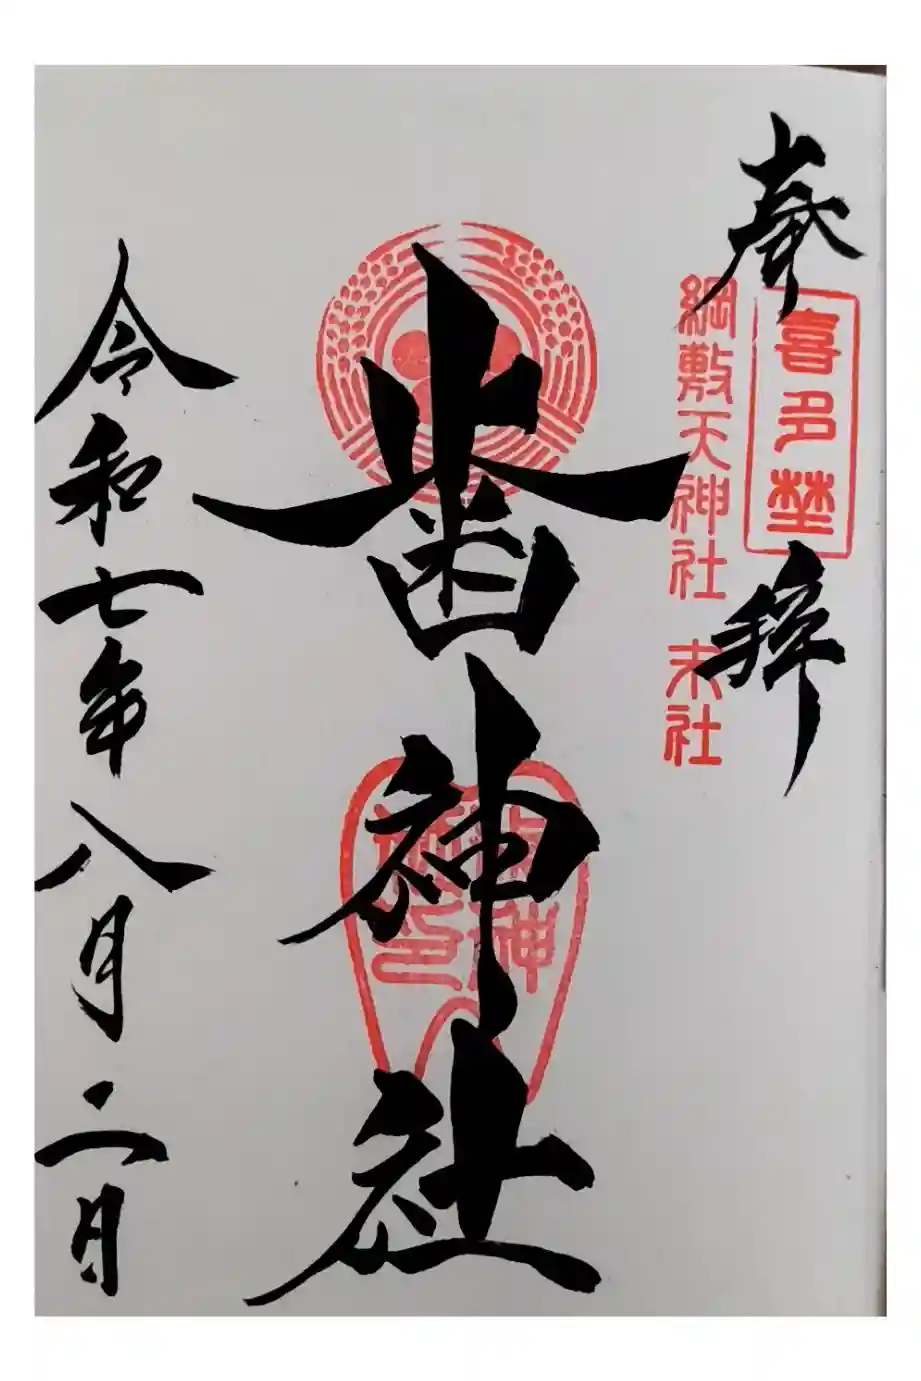 奉拝
喜多埜
綱敷天神社 末社
歯神社
歯神社印
令和七年八月二日